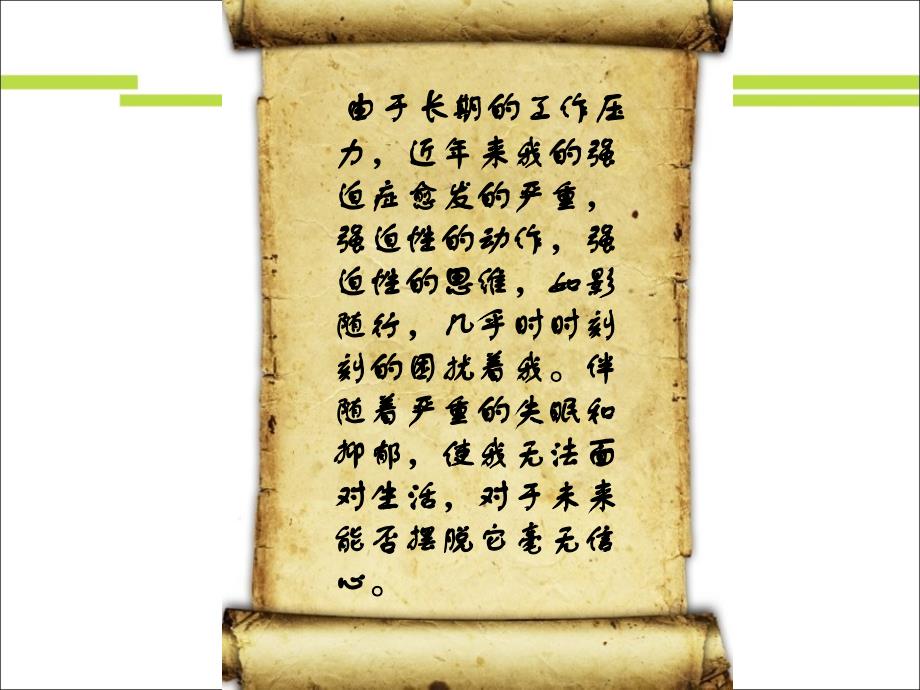 由于长期的工作压
力，近年来我的强
迫症愈发的严重，
强迫性的动作，强
迫性的思维，如影
随行，几乎时时刻
刻的困扰着我。伴
随着严重的失眠和
抑郁，使我无法面
对生活，对于未来
能否摆脱它毫无信
心。